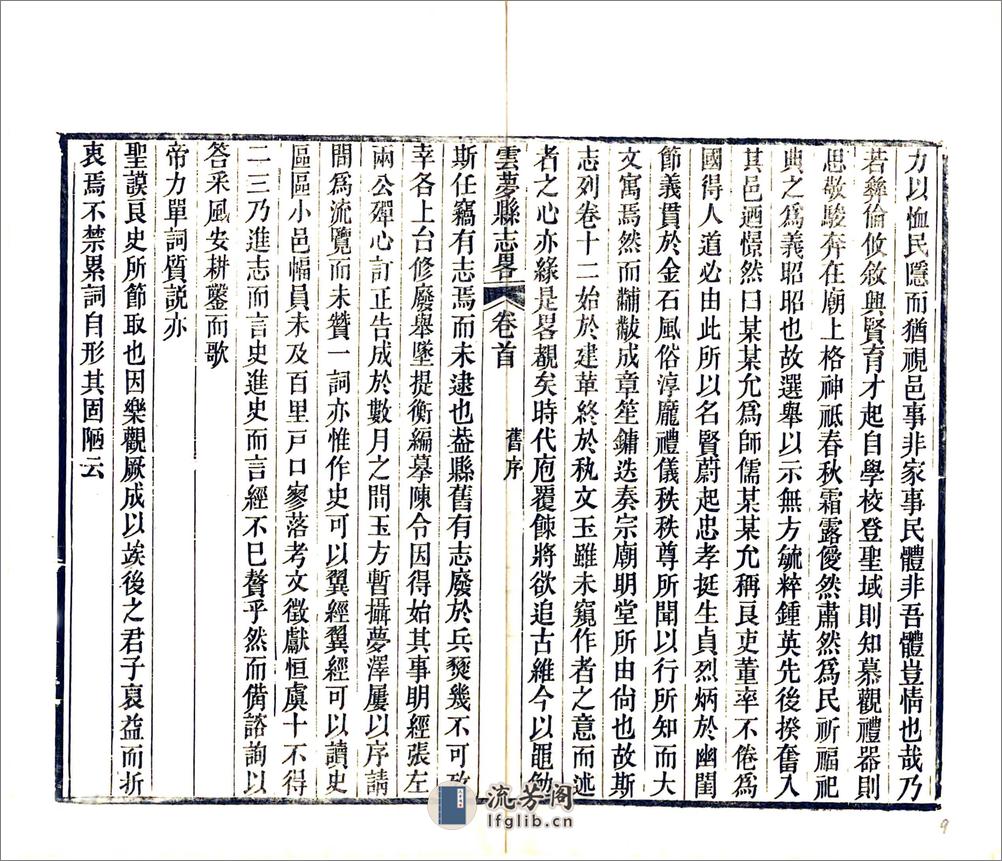 力以恤民隱而猶視邑事非家事民體非吾體豈情也哉乃
若彝倫攸敘興賢育才起自學校登聖域則知慕觀禮器則
思敬駿奔在廟上格神祗春秋霜露僾然肅然為民祈福祀
典之為義昭昭也故選舉以示無方毓粹鍾英先後揆奮入
其邑迺憬然曰某某允為師儒某某允稱良吏董率不倦為
國得人道必由此所以名賢蔚起忠孝挺生貞烈炳於幽閨
節義貫於金石風俗淳龐禮儀秩秩尊所聞以行所知而大
文寓焉然而黼黻成章笙鏞迭奏宗廟明堂所由尙也故斯
志列卷十二始於建革終於秇文玉雖未窺作者之意而述
者之心亦緣是畧覩矣時代庖覆餗將欲追古維今以黽勉
雲夢縣志畧 卷首 舊序
斯任竊有志焉而未逮也益縣舊有志廢於兵燹幾不可攷
幸各上台修廢舉墜提衡編摹陳令因得始其事明經張左
兩公殫心訂正告成於數月之間玉方暫攝夢澤屢以序請
間為流覽而未贊一詞亦惟作史可以翼經翼經可以讀史
區區小邑幅員未及百里戸口寥落考文徵獻恒虞十不得
二三乃進志而言史進史而言經不巳贅乎然而僃諮詢以
答采風安耕鑿而歌
帝力單詞質説亦
聖謨良史所節取也因樂觀厥成以俟後之君子裒益而折
衷焉不禁累詞自形其固陋云
流芳阁
lfglib.cn
9